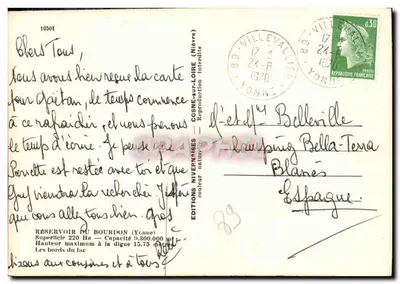 10501
Chers Tous,
nous avons bien reçue la carte
pour Gaëtan, le temps commence
à ce rafraidir, et nous prenons
le temps d'écrire. Je pense que
Perrette est restée avec toi et que
Guy viendra la rechercher. J'espère
que vous allez tous bien. Gros
RÉSERVOIR DU BOURDON (Yonne)
Superficie 220 Ha — Capacité 9.300.000
Hauteur maximum à la digue 15,75
Les bords du lac
bisous aux cousines et à tous
ÉDITIONS NIVERNAISES - COSNE-sur-LOIRE (Nièvre)
couleur naturelle Reproduction interdite
89 - VILLEVALLIER
17 H
24-8
1970
YONNE
0,30
RÉPUBLIQUE FRANÇAISE
M. et Mme Belleville
Camping Bella-Terra
Blanès
Espagne
89